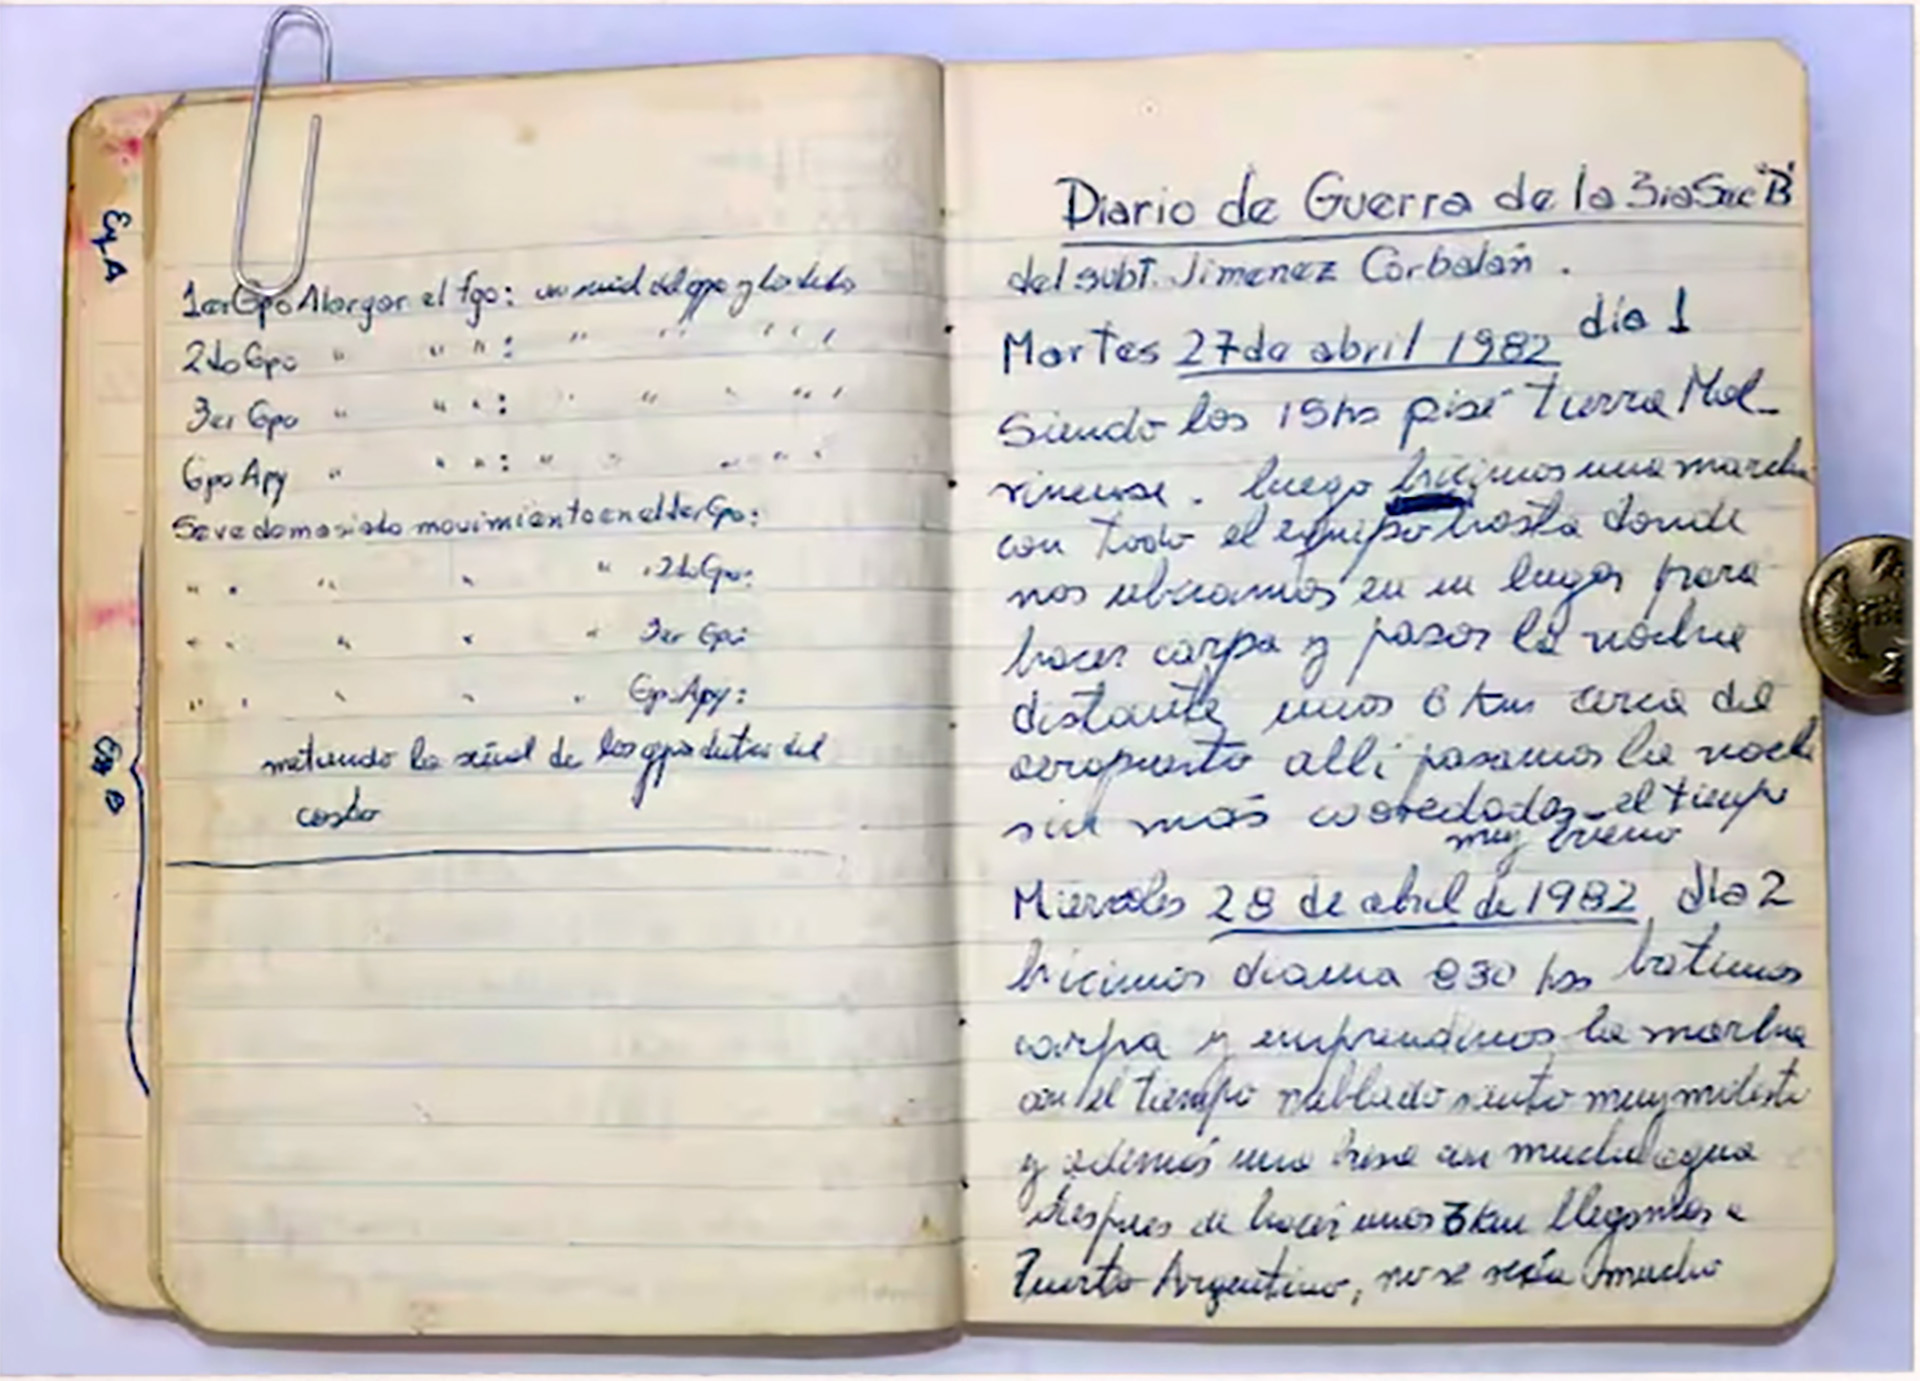 Ej A
Gpo B
1er Gpo Alargar el fgo: un ruid del gpo y la dedo
2do Gpo " " " : " " " " "
3er Gpo " " " : " " " " " "
Gpo Apy " " " : " " " " " "
Se ve demasiado movimiento en el 1er Gpo:
" " " " " 2do Gpo:
" " " " " 3er Gpo:
" " " " " Gpo Apy:
metiendo la señal de los gpo dentro del
casco
Diario de Guerra de la 3ia Sec "B"
del subt. Jimenez Corbalán.
Martes 27 de abril 1982 día 1
Siendo las 15 hs pisé tierra Mal-
vinense. luego hicimos una marcha
con todo el equipo hasta donde
nos ubicamos en un lugar para
hacer carpa y pasar la noche
distante unos 6 Km cerca del
aeropuerto allí pasamos la noche
sin más novedades el tiempo
muy bueno
Miercoles 28 de abril de 1982 día 2
hicimos diana 830 hs batimos
carpa y emprendimos la marcha
con el tiempo nublado viento muy molesto
y además una brisa con mucha agua
despues de hacer unos 6 km llegamos a
Puerto Argentino, no se veía mucho